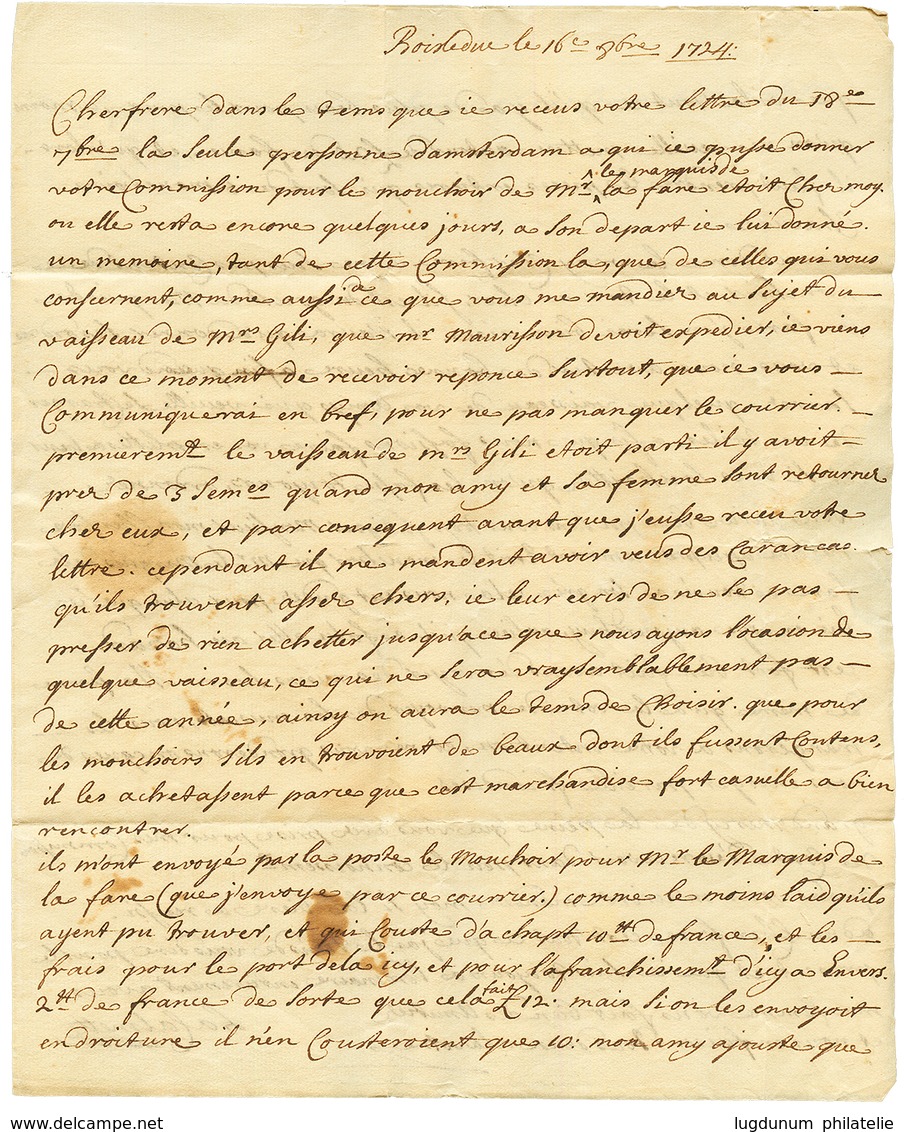 Boisleduc le 16e 8bre 1724:
Cherfrere dans le tems que ie receus votre lettre du 18e
7bre la seule perssonne damsterdam a qui ie pusse donner
votre Commission pour le mouchoir de Mr le marquis de la fare etoit Chez moy
ou elle resta encore quelques jours, a son depart ie lui donné
un memoire, tant de cette Commission la, que de celles qui vous
conscernent, comme aussi a ce que vous me mandiez au sujet du
vaisseau de Mrs Gili, que mr Maurisson devoit expedier, ie viens
dans ce moment de recevoir reponce surtout, que ie vous
Communiquerai en bref, pour ne pas manquer le courrier.
premieremt le vaisseau de mrs Gili etoit parti il y avoit
prez de 3 semes quand mon amy et sa femme sont retournez
chez eux, et par consequent avant que j'eusse receu votre
lettre. cependant il me mandent avoir veus des Carancas
qu'ils trouvent assez chers, ie leur ecris de ne se pas
presser de rien achetter jusqu'ace que nous ayons l'ocasion de
quelque vaisseau, ce qui ne sera vraysemblablement pas
de cette année, ainsy on aura le tems de Choisir. que pour
les mouchoirs sils en trouvoient de beaux dont ils fussent Contens,
il les achetassent parce que cest marchandise fort casuelle a bien
rencontrer.
ils m'ont envoyé par la poste le Mouchoir pour Mr le Marquis de
la fare (que j'envoye par ce courrier.) comme le moins laid qu'ils
ayent pu trouver, et qui Couste d'achapt 10tt de france, et les
frais pour le port dela icy, et pour l'afranchissemt d'icy a Envers
2tt de france de sorte que cela fait £ 12. mais si on les envoyoit
endroiture il n'en Cousteroient que 10: mon amy ajouste que
www.delcampe.net
lugdunum philatelie